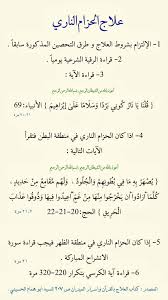 علاج الحزام الناري
1- الإلتزام بشروط العلاج و طرق التحصين المذكورة سابقاً .
2- قراءة الرقية الشرعية يومياً .
3- قراءة الآية :
{ قُلْنَا يَا نَارُ كُونِي بَرْدًا وَسَلَامًا عَلَى إِبْرَاهِيمَ } الأنبياء:69
4- إذا كان الحزام الناري في منطقة البطن فتقرأ
الآيات التالية :
{ يُصْهَرُ بِهِ مَا فِي بُطُونِهِمْ وَالْجُلُودُ . وَلَهُم مَّقَامِعُ مِنْ حَدِيدٍ .
كُلَّمَا أَرَادُوا أَن يَخْرُجُوا مِنْهَا مِنْ غَمٍّ أُعِيدُوا فِيهَا وَذُوقُوا عَذَابَ
الْحَرِيقِ } الحج:20-21-22
5- إذا كان الحزام الناري في منطقة الظهر فيجب قراءة سورة
الانشراح المباركة .
6- قراءة آية الكرسي بتكرار 220-320 مرة